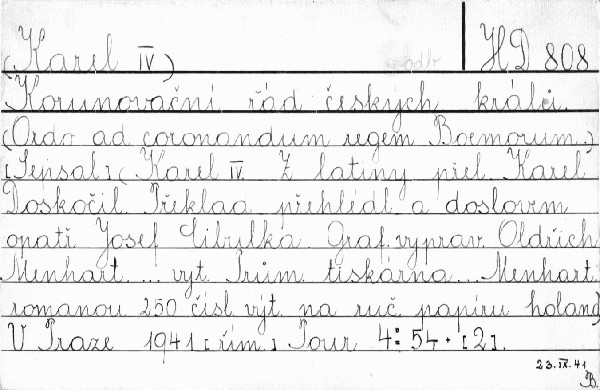 (Karel IV) HD 808
Korunovační řád českých králů.
(Ordo ad coronandum regem Boemorum.)
[Sepsal] (Karel IV. Z latiny přel. Karel
Doskočil. Překlad přehlédl a doslovem
opatř. Josef Cibulka. Graf. vyprav. Oldřich
Menhart. ... vyt. Prům. tiskárna ... Menhart.
romanou 250 čísl. výt. na ruč. papíru holand)
V Praze 1941 [řím] Pour 4: 54 - [2].
23.IX.41